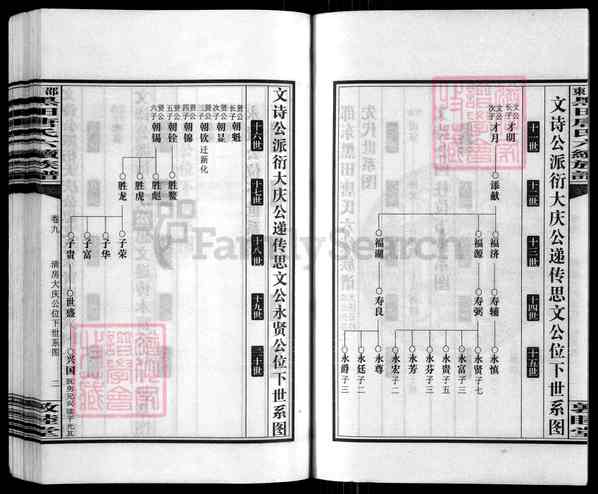 文诗公派衍大庆公递传思文公位下世系图
十一世
十二世
十三世
十四世
十五世
文公长子 才明
文公次子 才月
添献
福济
福源
福湖
寿辅
寿弼
寿良
永慎
永贤 子七
永富 子三
永贵 子五
永芬 子三
永芳
永宏 子二
永尊
永廷 子二
永爵 子三
敦睦堂
文诗公派衍大庆公递传思文公永贤公位下世系图
十六世
十七世
十八世
十九世
二十世
贤公长子 朝魁
贤公次子 朝显
贤公三子 朝钦 迁新化
贤公四子 朝锦
贤公五子 朝铨
贤公六子 朝锡
胜鳌
胜彪
胜虎
胜龙
子荣
子华
子富
子贵
世盛
兴国
卷九
清房大庆公位下世系图
二
敦睦堂
FamilySearch